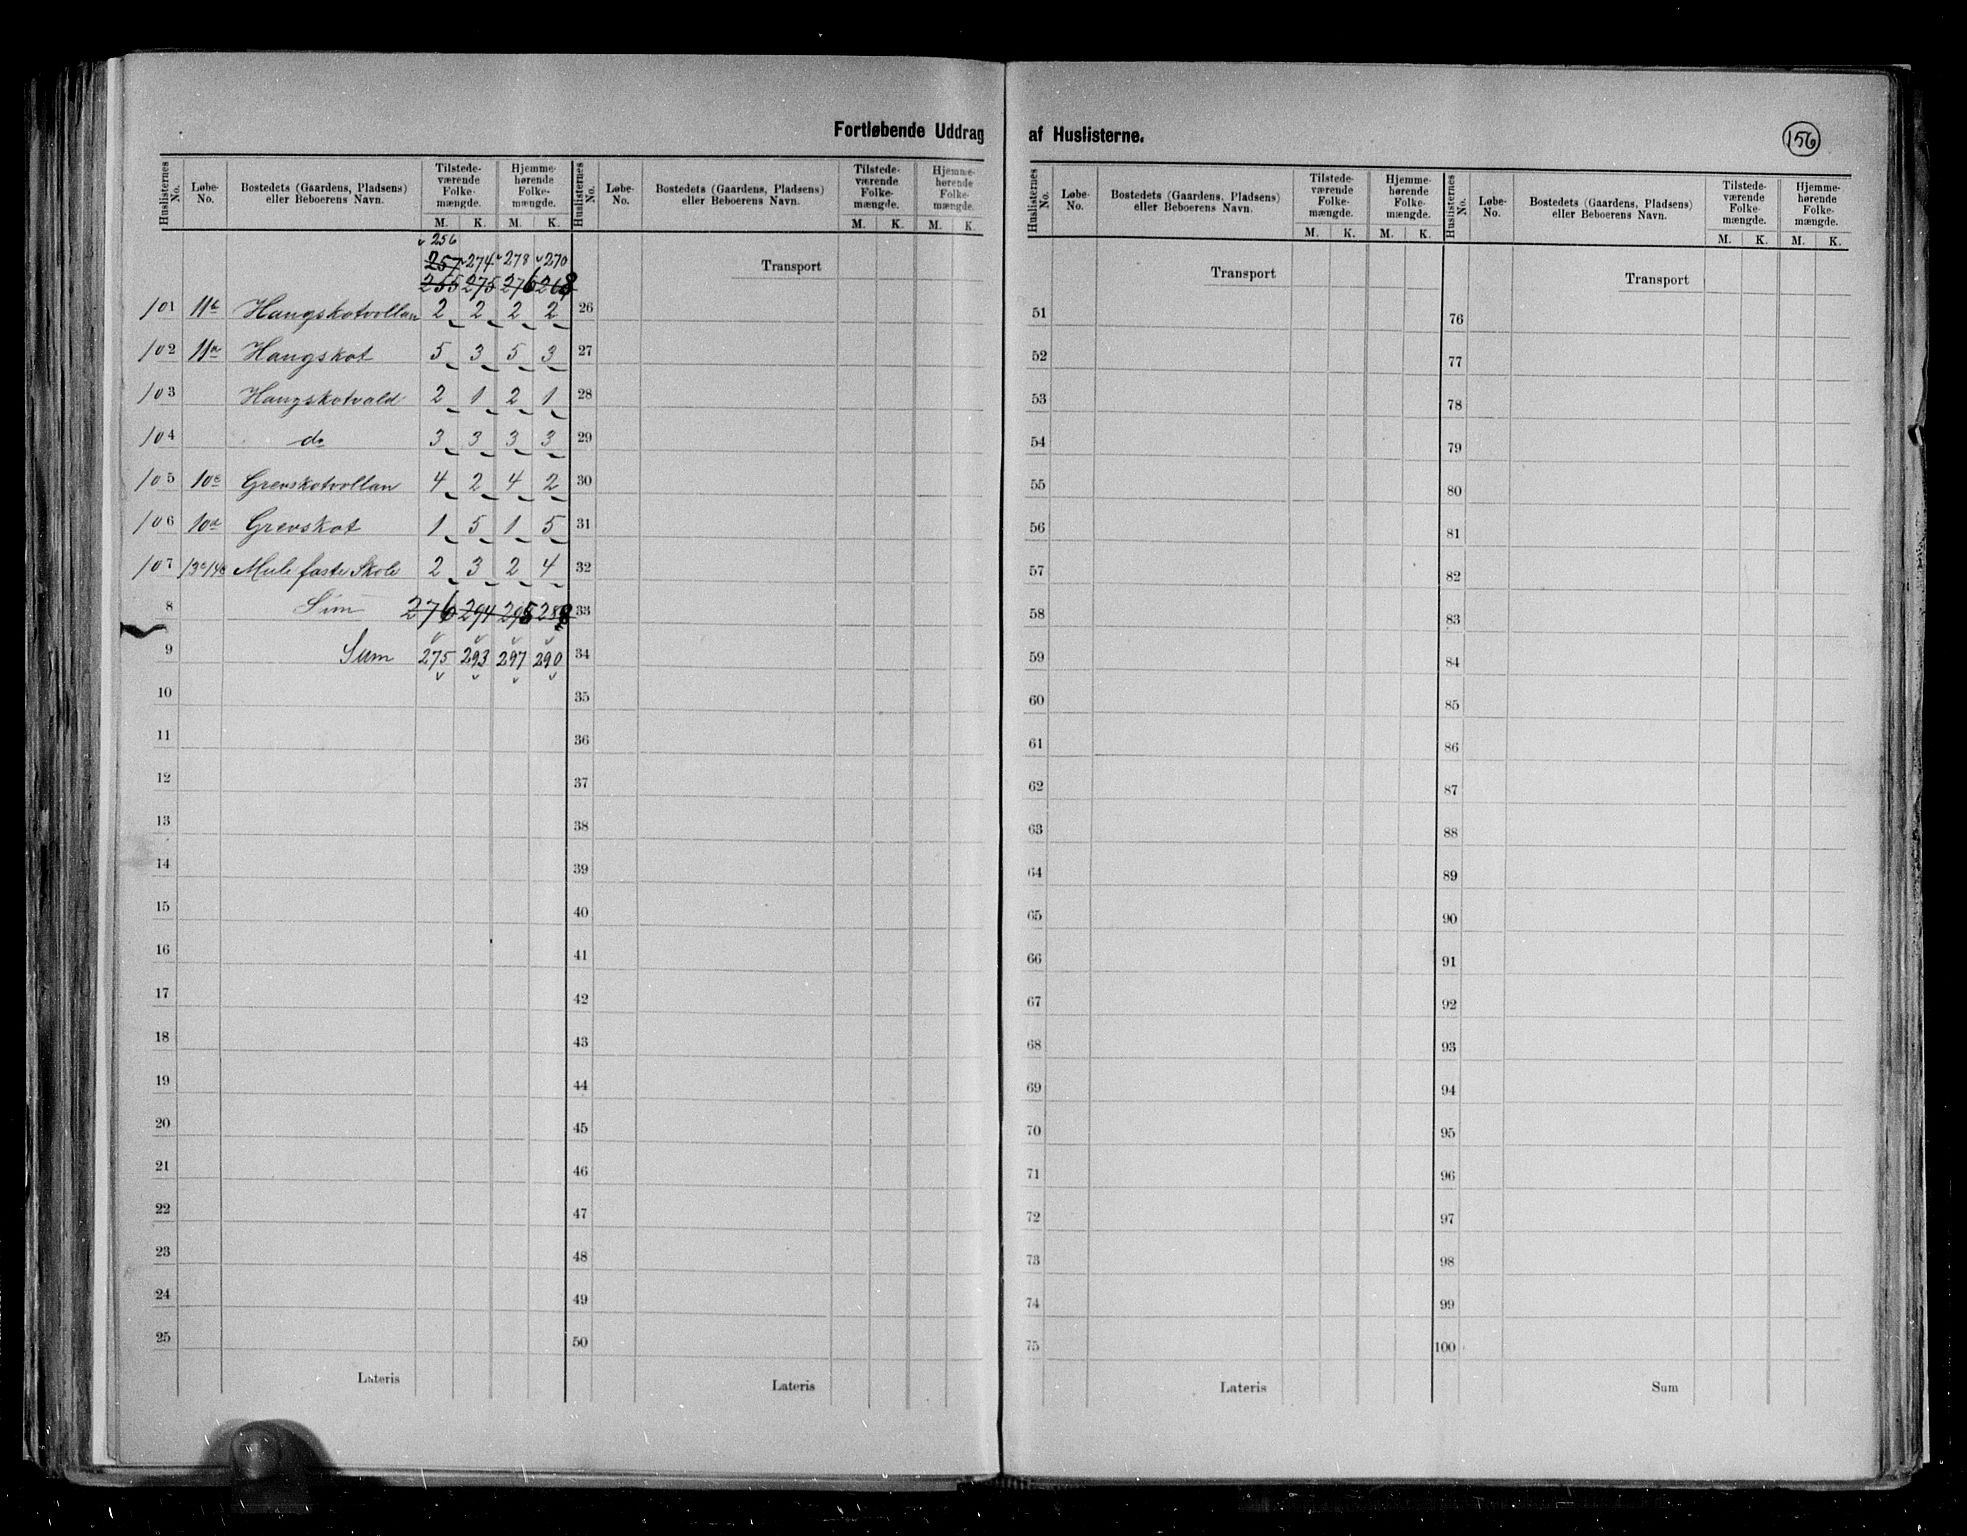 Fortløbende Uddrag af Huslisterne.
156
Huslisternes No. Løbe-No. Bostedets (Gaardens, Pladsens) eller Beboerens Navn. Tilstedeværende Folkemængde. M. K. Hjemmehørende Folkemængde. M. K.
Huslisternes No. Løbe-No. Bostedets (Gaardens, Pladsens) eller Beboerens Navn. Tilstedeværende Folkemængde. M. K. Hjemmehørende Folkemængde. M. K.
Huslisternes No. Løbe-No. Bostedets (Gaardens, Pladsens) eller Beboerens Navn. Tilstedeværende Folkemængde. M. K. Hjemmehørende Folkemængde. M. K.
Huslisternes No. Løbe-No. Bostedets (Gaardens, Pladsens) eller Beboerens Navn. Tilstedeværende Folkemængde. M. K. Hjemmehørende Folkemængde. M. K.
256
257 274 278 270
255 275 276 268
101 11b Haugskotvollan 2 2 2 2
102 11a Haugskot 5 3 5 3
103 Haugskotvald 2 1 2 1
104 do 3 3 3 3
105 10c Grevskotvollan 4 2 4 2
106 10a Grevskot 1 5 1 5
107 Mule faste Skole 2 3 2 4
8 Sum 276 294 295 288
9 Sum 275 293 297 290
10
11
12
13
14
15
16
17
18
19
20
21
22
23
24
25
Lateris
Transport
26
27
28
29
30
31
32
33
34
35
36
37
38
39
40
41
42
43
44
45
46
47
48
49
50
Lateris
Transport
51
52
53
54
55
56
57
58
59
60
61
62
63
64
65
66
67
68
69
70
71
72
73
74
75
Lateris
Transport
76
77
78
79
80
81
82
83
84
85
86
87
88
89
90
91
92
93
94
95
96
97
98
99
100
Sum